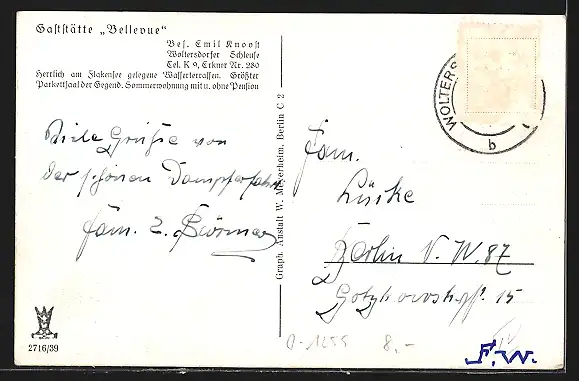 Gaststätte „Bellevue“
Bes. Emil Knoost
Woltersdorfer Schleuse
Tel. K 9, Erkner Nr. 280
Herrlich am Flakensee gelegene Wasserterrassen. Größter
Parkettsaal der Gegend. Sommerwohnung mit u. ohne Pension
Viele Grüße von
der schönen Dampferfahrt
Fam. E.
2716/39
Graph. Anstalt W. Meyerheim, Berlin C 2
WOLTERS
b
Fam.
Lüske
Berlin N.W. 87
Gotzkowskystr. 15
0-1255 8,-
F.W.